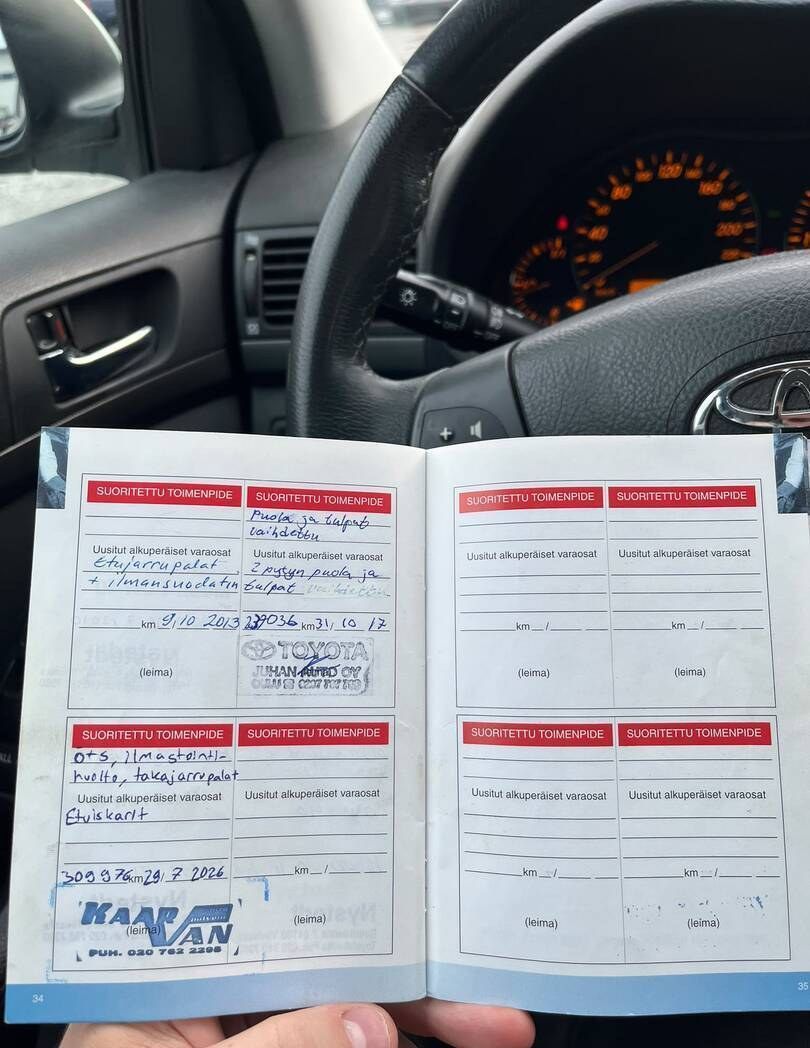 80 120 160
40 200
+
SUORITETTU TOIMENPIDE
Uusitut alkuperäiset varaosat
Etujarrupalat
+ ilmansuodatin
km 9/10 2013
(leima)
SUORITETTU TOIMENPIDE
Puola ja tulpat
vaihdettu
Uusitut alkuperäiset varaosat
2 puola ja
tulpat
km 31/ 10 17
TOYOTA
JUHAN AUTO OY
SUORITETTU TOIMENPIDE
öts, ilmastointi-
huolto, takajarrupalat
Uusitut alkuperäiset varaosat
Etuiskarit
309976 km 29/ 7 2026
KAAR
VAN
(leima)
PUH. 020 762 2298
SUORITETTU TOIMENPIDE
Uusitut alkuperäiset varaosat
km /
(leima)
34
SUORITETTU TOIMENPIDE
Uusitut alkuperäiset varaosat
km /
(leima)
SUORITETTU TOIMENPIDE
Uusitut alkuperäiset varaosat
km /
(leima)
SUORITETTU TOIMENPIDE
Uusitut alkuperäiset varaosat
km /
(leima)
SUORITETTU TOIMENPIDE
Uusitut alkuperäiset varaosat
km /
(leima)
35